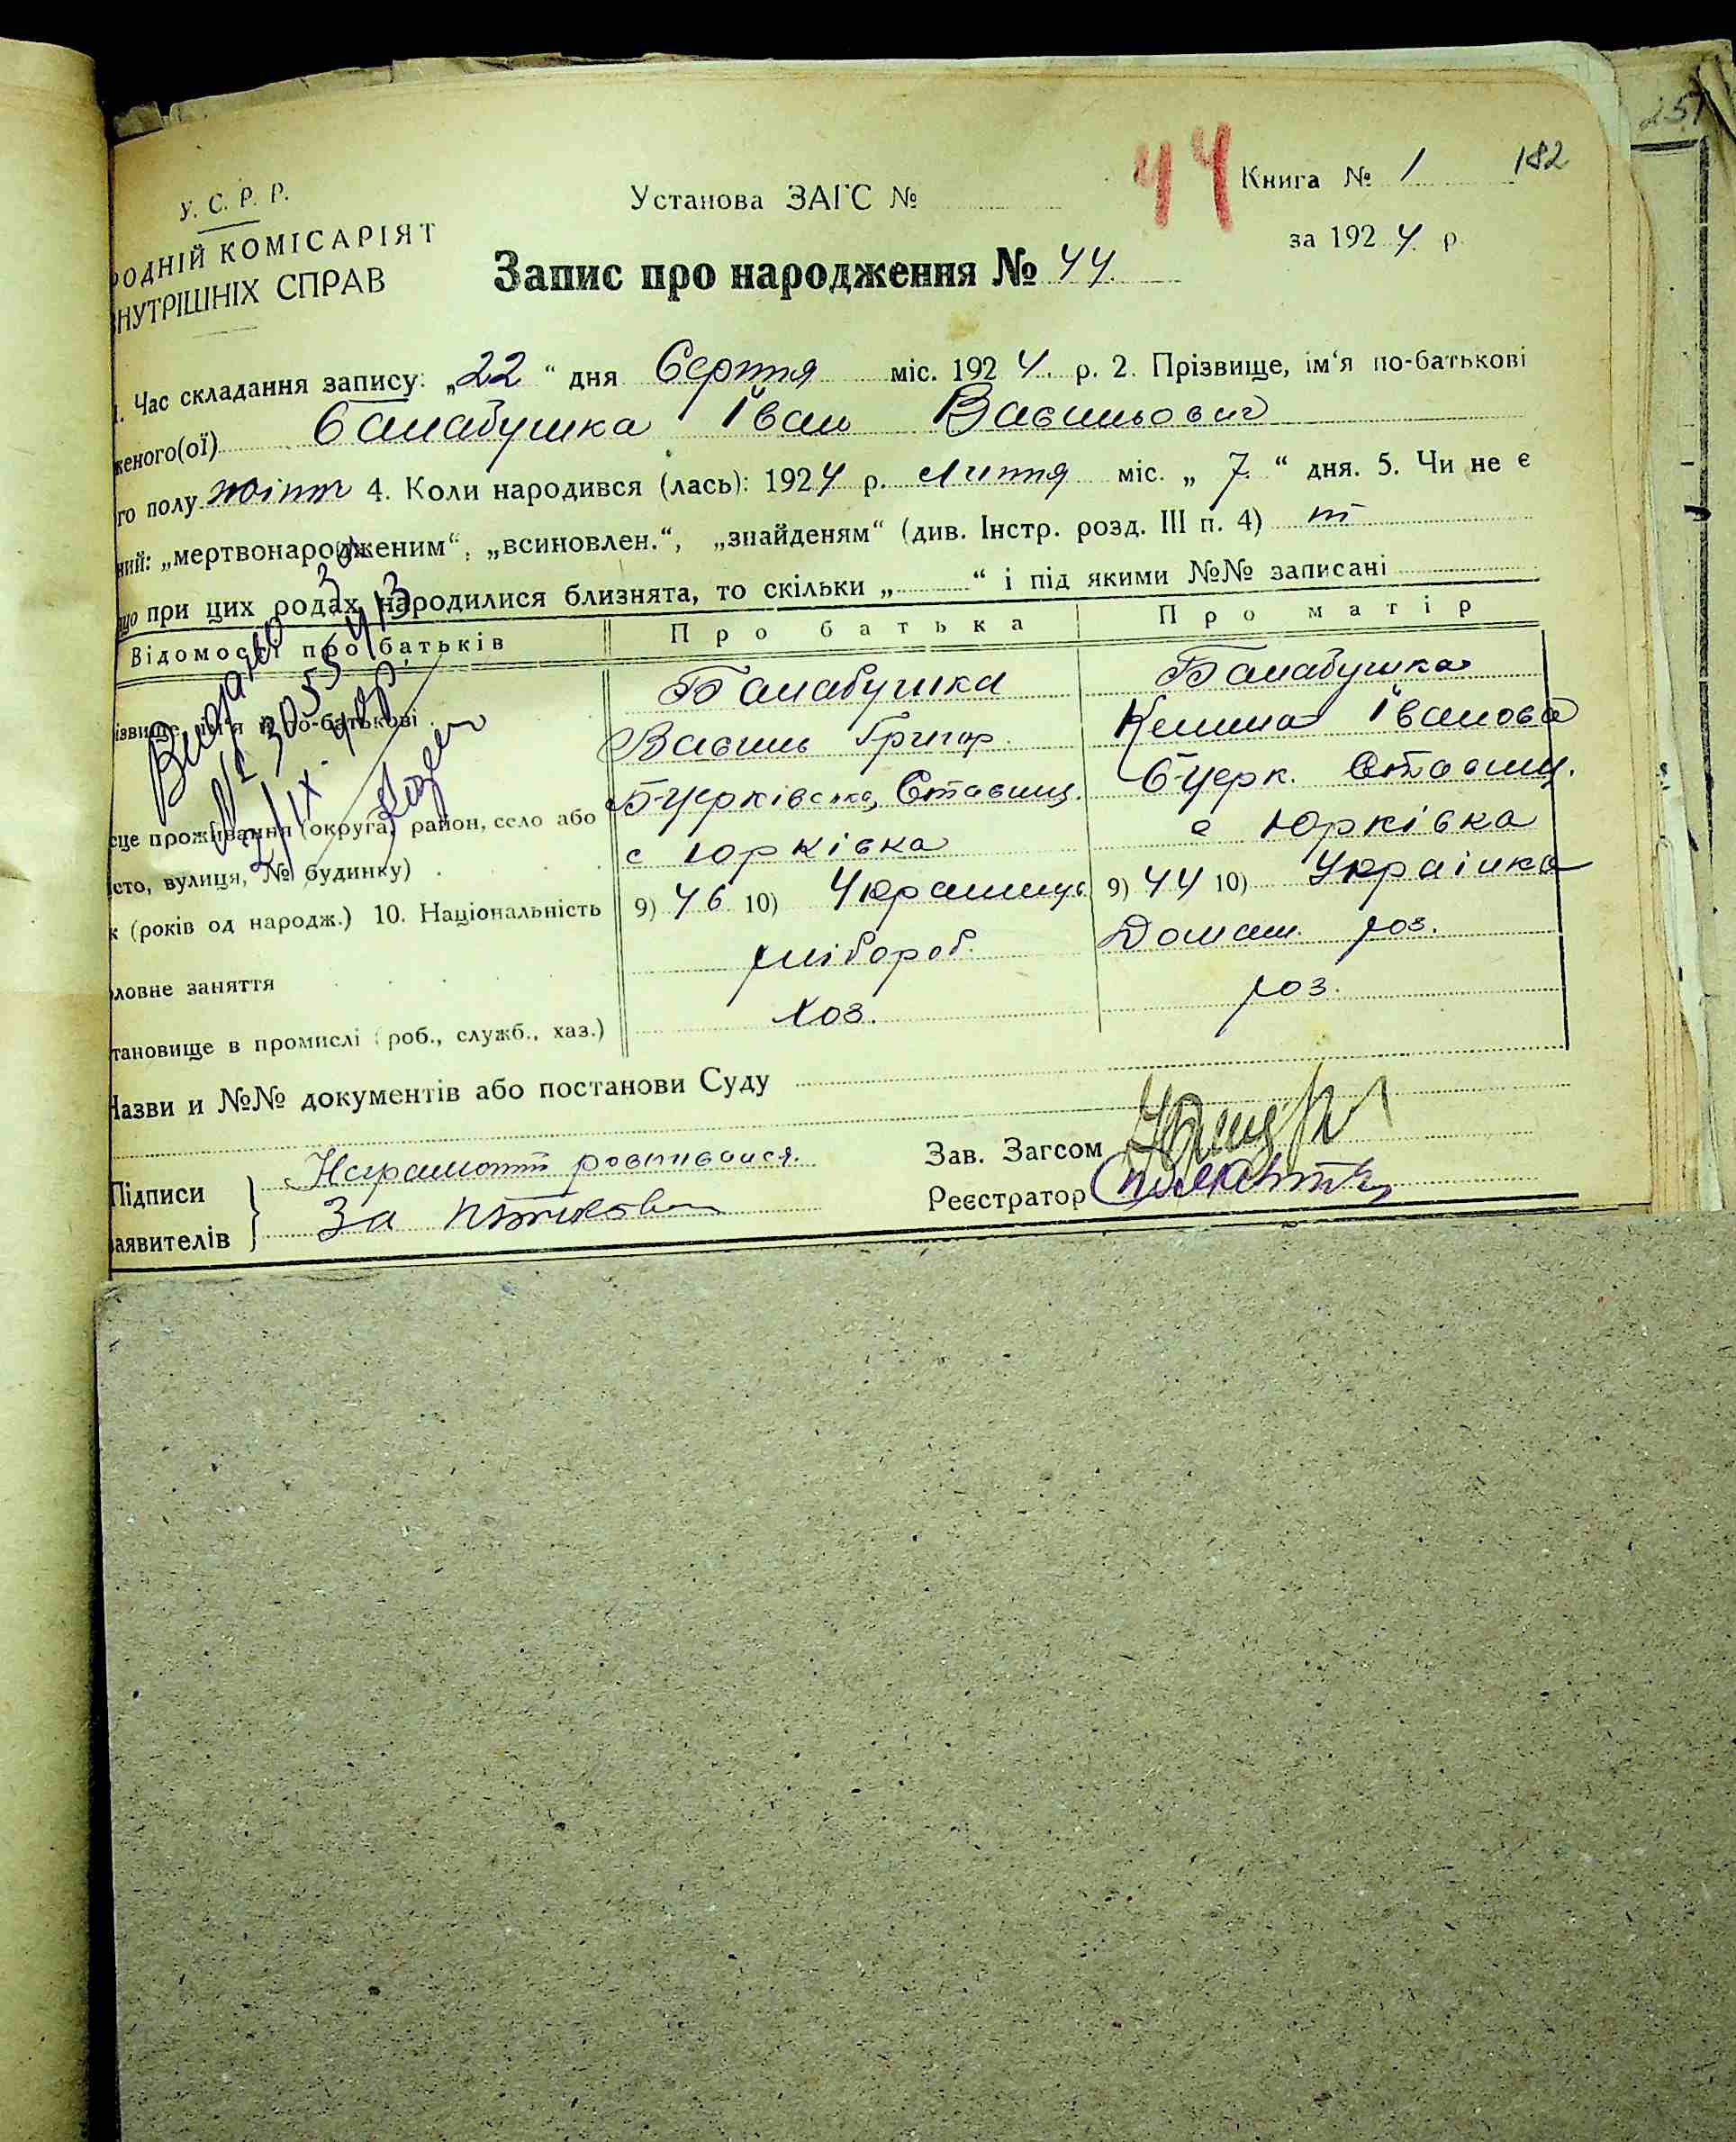 У. С. Р. Р.
РОДНІЙ КОМІСАРІЯТ
НУТРІШНІХ СПРАВ
Установа ЗАГС №
44
Книга № 1
182
251
за 1924 р.
Запис про народження № 44.
1. Час складання запису: „22“ дня Серпня міс. 1924. р. 2. Прізвище, ім‘я по-батькові
женого(ої) Балабушка Іван Васильович
го полу 4. Коли народився (лась): 1924 р. Липня міс. „7.“ дня. 5. Чи не є
ний: „мертвонародженим“, „всиновлен.“, „знайденям“ (див. Інстр. розд. III п. 4)
що при цих родах народилися близнята, то скільки „ “ і під якими №№ записані
Відомості про батьків
Про батька
Про матір
ізвище, ім‘я и по-батькові
Балабушка
Балабушка
Василь Григор.
Іванова
сце проживання (округа, район, село або
Б-Церківська, Ставищ.
Б-Церк. Ставищ.
істо, вулиця, № будинку)
с Юрківка
с Юрківка
к (років од народж.) 10. Національність
9) 46 10) Українец
9) 44 10) Українка
ловне заняття
хлібороб.
Домаш. хоз.
тановище в промислі (роб., служб., хаз.)
хоз.
хоз.
Назви и №№ документів або постанови Суду
Підписи
заявителів
Неграмотн росписався.
За
Зав. Загсом
Реєстратор